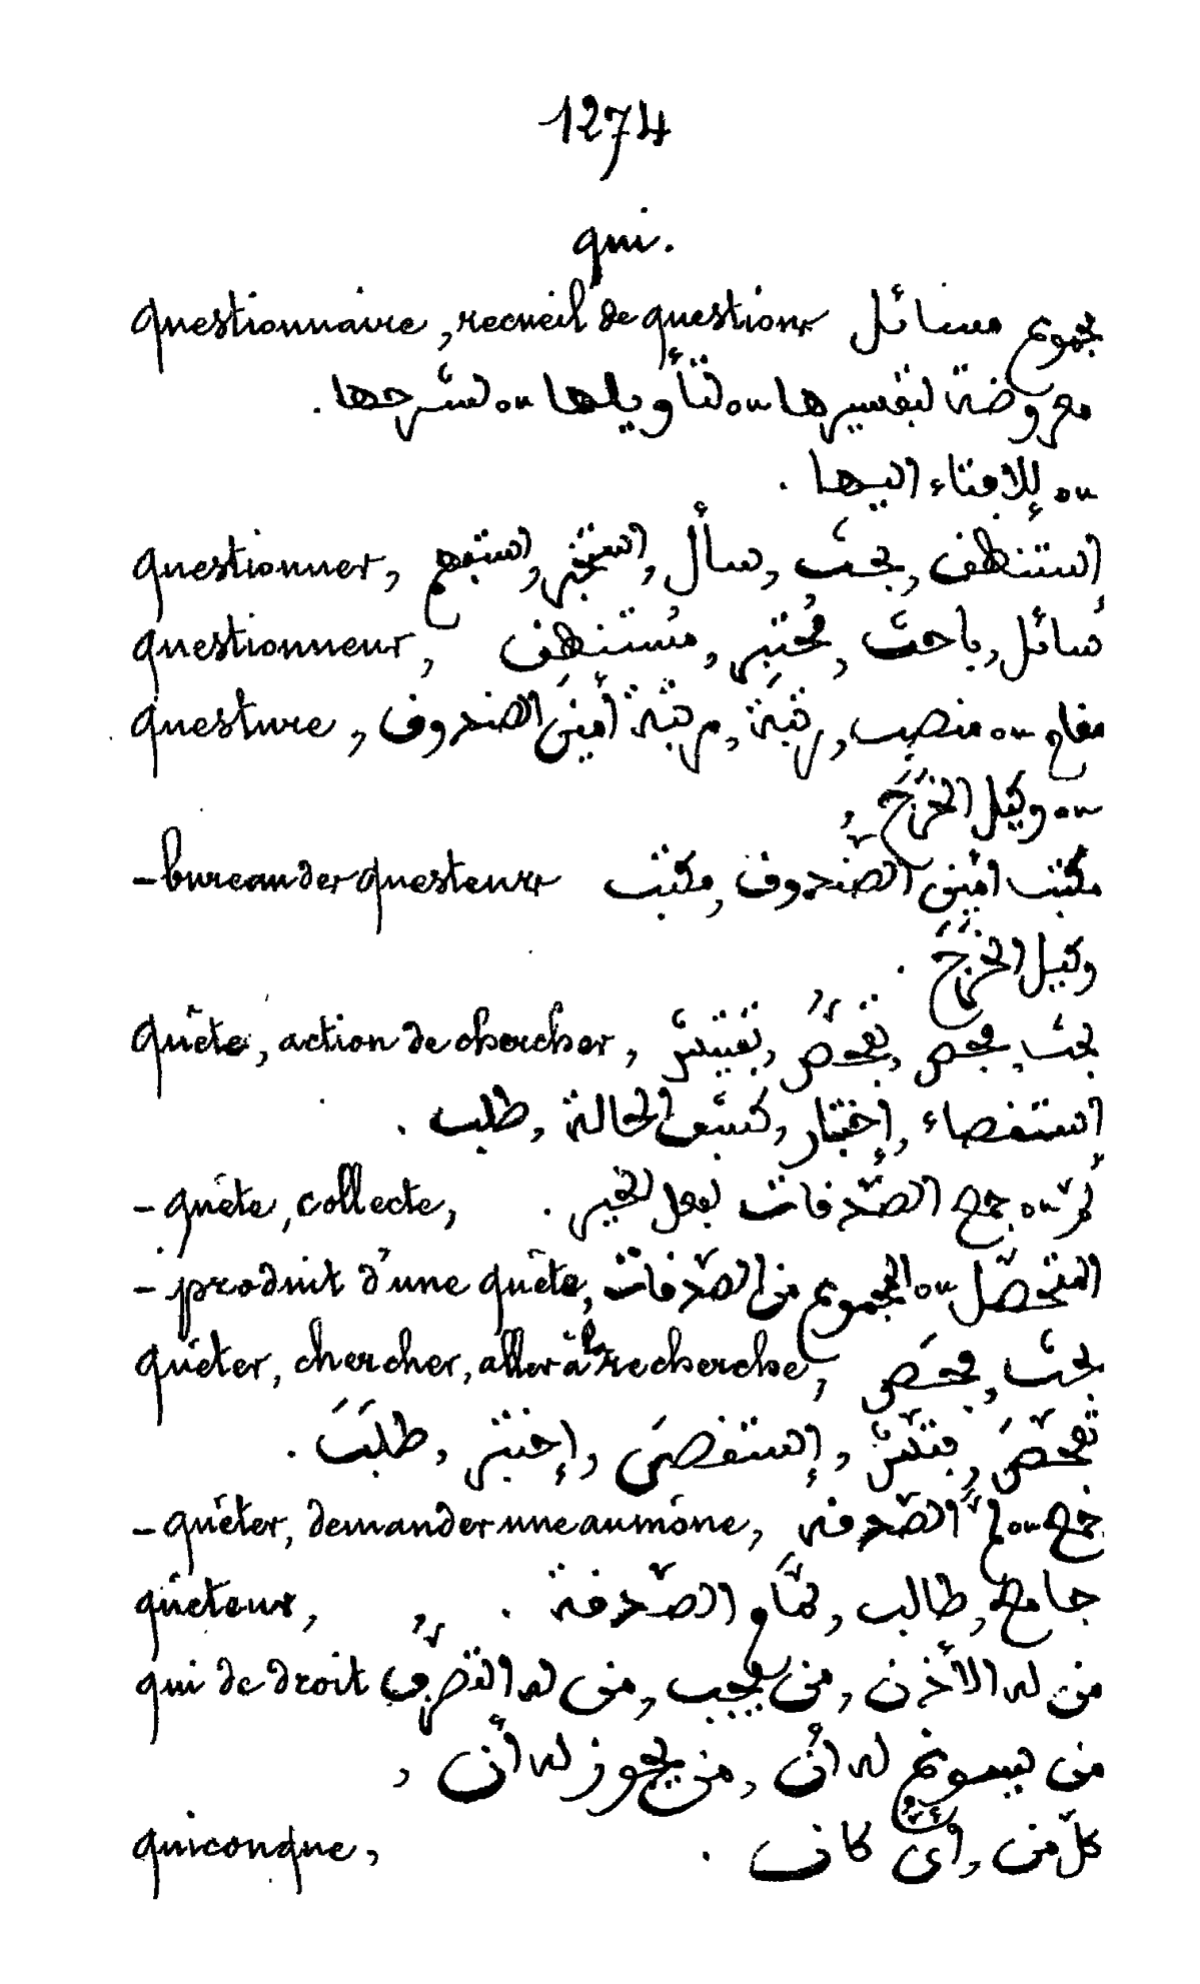 1274
qui.
questionnaire, recueil de questions مجموع مسائل
معروضة لتفسيرها ou لتأويلها ou لشرحها.
ou للإفتاء اليها.
questionner, إستنطق, بحث, سأل, استخبر, استفهم
questionneur, سائل, باحث, مختبر, مُستنطق
questure, مقام ou منصب, رتبة, مرتبة أمين الصندوق
ou وكيل الخَرْج,
- bureau des questeurs مكتب امين الصُّندوق, مكتب
وكيل الخَرْجَ.
quête, action de chercher, بحث, فحص, تفحّصُ, تفتيش
استقصاء, إختبار, كشف الحالة, طلب.
- quête, collecte, جمع الصّدقات لفعل الخير.
- produit d'une quête, المتحصّل ou المجموع من الصّدقات
quêter, chercher, aller à la recherche, بحث, فحَص
تفحّصَ, فتّش, إستقصَى, إختبر, طلَبَ.
- quêter, demander une aumône, جمع ou لمّ الصّدقة
quêteur, جامع, طالب, لمّام الصّدقة.
qui de droit من له الأذن, من يجب, من له التصرّفُ
من يسوغ له أن, من يجوز له أن,
quiconque, كلّ من, أيُّ كان.